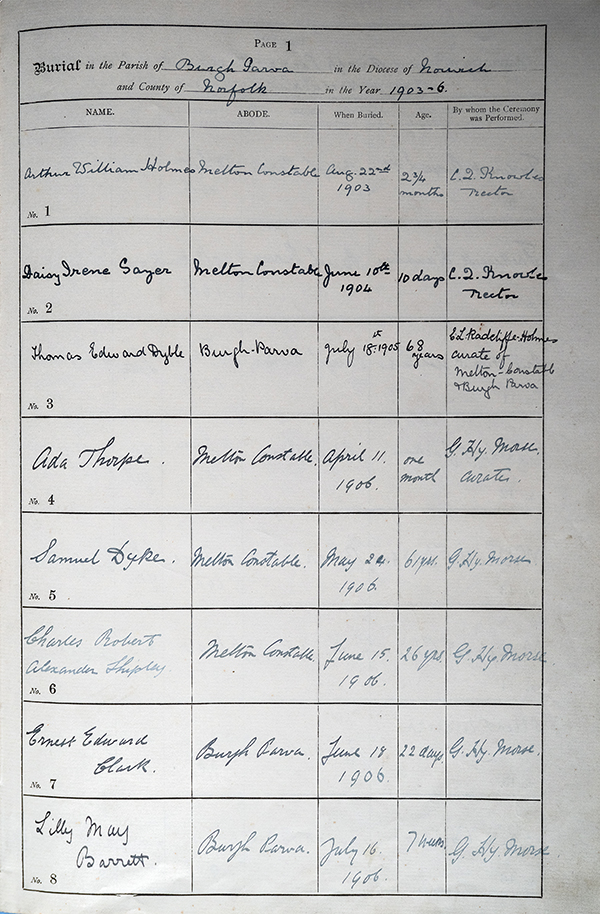 PAGE 1
Burial in the Parish of Burgh Parva in the Diocese of Norwich
and County of Norfolk in the Year 1903-6.
NAME. ABODE. When Buried. Age. By whom the Ceremony was Performed.
Arthur William Holmes Melton Constable Aug. 22nd 1903 2 3/4 months C. Q. Knowles Rector
No. 1
Daisy Irene Sayer Melton Constable June 10th 1904 10 days C. Q. Knowles Rector
No. 2
Thomas Edward Dyble Burgh-Parva July 18th 1905 68 years E L Radclyffe-Holmes curate of Melton-Constable & Burgh Parva
No. 3
Ada Thorpe. Melton Constable. April 11. 1906. one month G. Hy. Morse. curate.
No. 4
Samuel Dyke. Melton Constable. May 24. 1906. 61 yrs. G. Hy. Morse
No. 5
Charles Robert Alexander Shipley Melton Constable. June 15. 1906. 26 yrs. G. Hy. Morse
No. 6
Ernest Edward Clark. Burgh Parva. June 18 1906. 22 days. G. Hy. Morse.
No. 7
Lilly May Barrett. Burgh Parva. July 16. 1906. 7 G. Hy. Morse.
No. 8